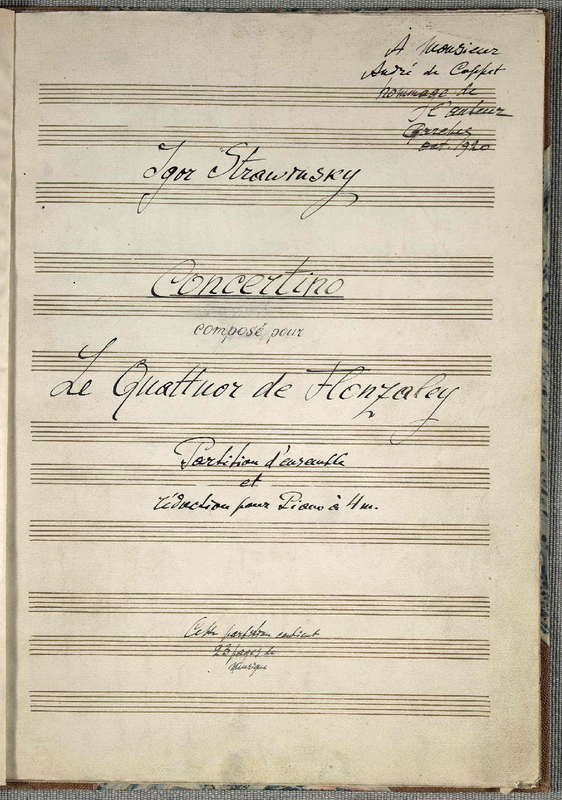 À Monsieur
André de Coppet
hommage de
l'auteur
Garches
oct. 1920
Igor Strawinsky
Concertino
composé pour
Le Quattuor de Flonzaley
Partition d'ensemble
et
réduction pour Piano à 4 m.
Cette partition contient
23 pages de
musique